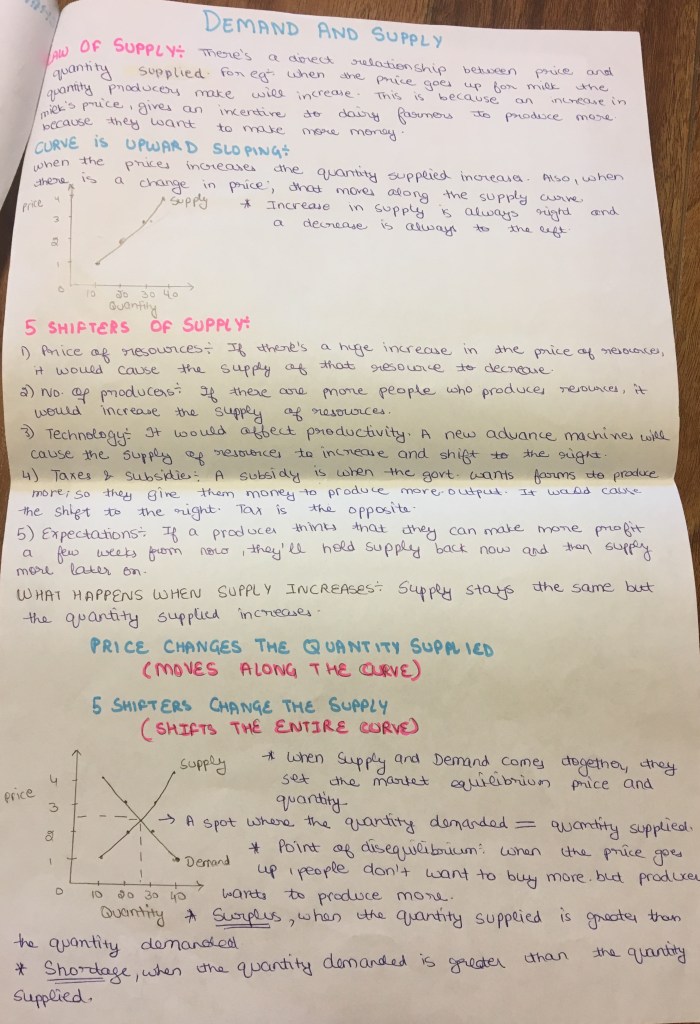 DEMAND AND SUPPLY
LAW OF SUPPLY: There's a direct relationship between price and
quantity supplied. For eg: when the price goes up for milk the
quantity producers make will increase. This is because an increase in
milk's price, gives an incentive to dairy farmers to produce more
because they want to make more money.
CURVE IS UPWARD SLOPING:
when the prices increases the quantity supplied increases. Also, when
there is a change in price, that moves along the supply curve
* Increase in supply is always right and
a decrease is always to the left.
Price
4
3
2
1
0
10 20 30 40
Quantity
Supply
5 SHIFTERS OF SUPPLY:
1) Price of resources: If there's a huge increase in the price of resources,
it would cause the supply of that resource to decrease.
2) No. of producers: If there are more people who produces resources, it
would increase the supply of resources.
3) Technology: It would affect productivity. A new advance machines will
cause the supply of resources to increase and shift to the right.
4) Taxes & Subsidies: A subsidy is when the govt. wants farms to produce
more, so they give them money to produce more output. It would cause
the shift to the right. Tax is the opposite.
5) Expectations: If a producer thinks that they can make more profit
a few weeks from now, they'll hold supply back now and then supply
more later on.
WHAT HAPPENS WHEN SUPPLY INCREASES: Supply stays the same but
the quantity supplied increases.
PRICE CHANGES THE QUANTITY SUPPLIED
(MOVES ALONG THE CURVE)
5 SHIFTERS CHANGE THE SUPPLY
(SHIFTS THE ENTIRE CURVE)
* When Supply and Demand comes together, they
set the market equilibrium price and
quantity.
→ A spot where the quantity demanded = quantity supplied.
* Point of disequilibrium: when the price goes
up, people don't want to buy more but producer
wants to produce more.
Price
4
3
2
1
0
10 20 30 40
Quantity
Supply
Demand
* Surplus, when the quantity supplied is greater than
the quantity demanded
* Shortage, when the quantity demanded is greater than the quantity
supplied.